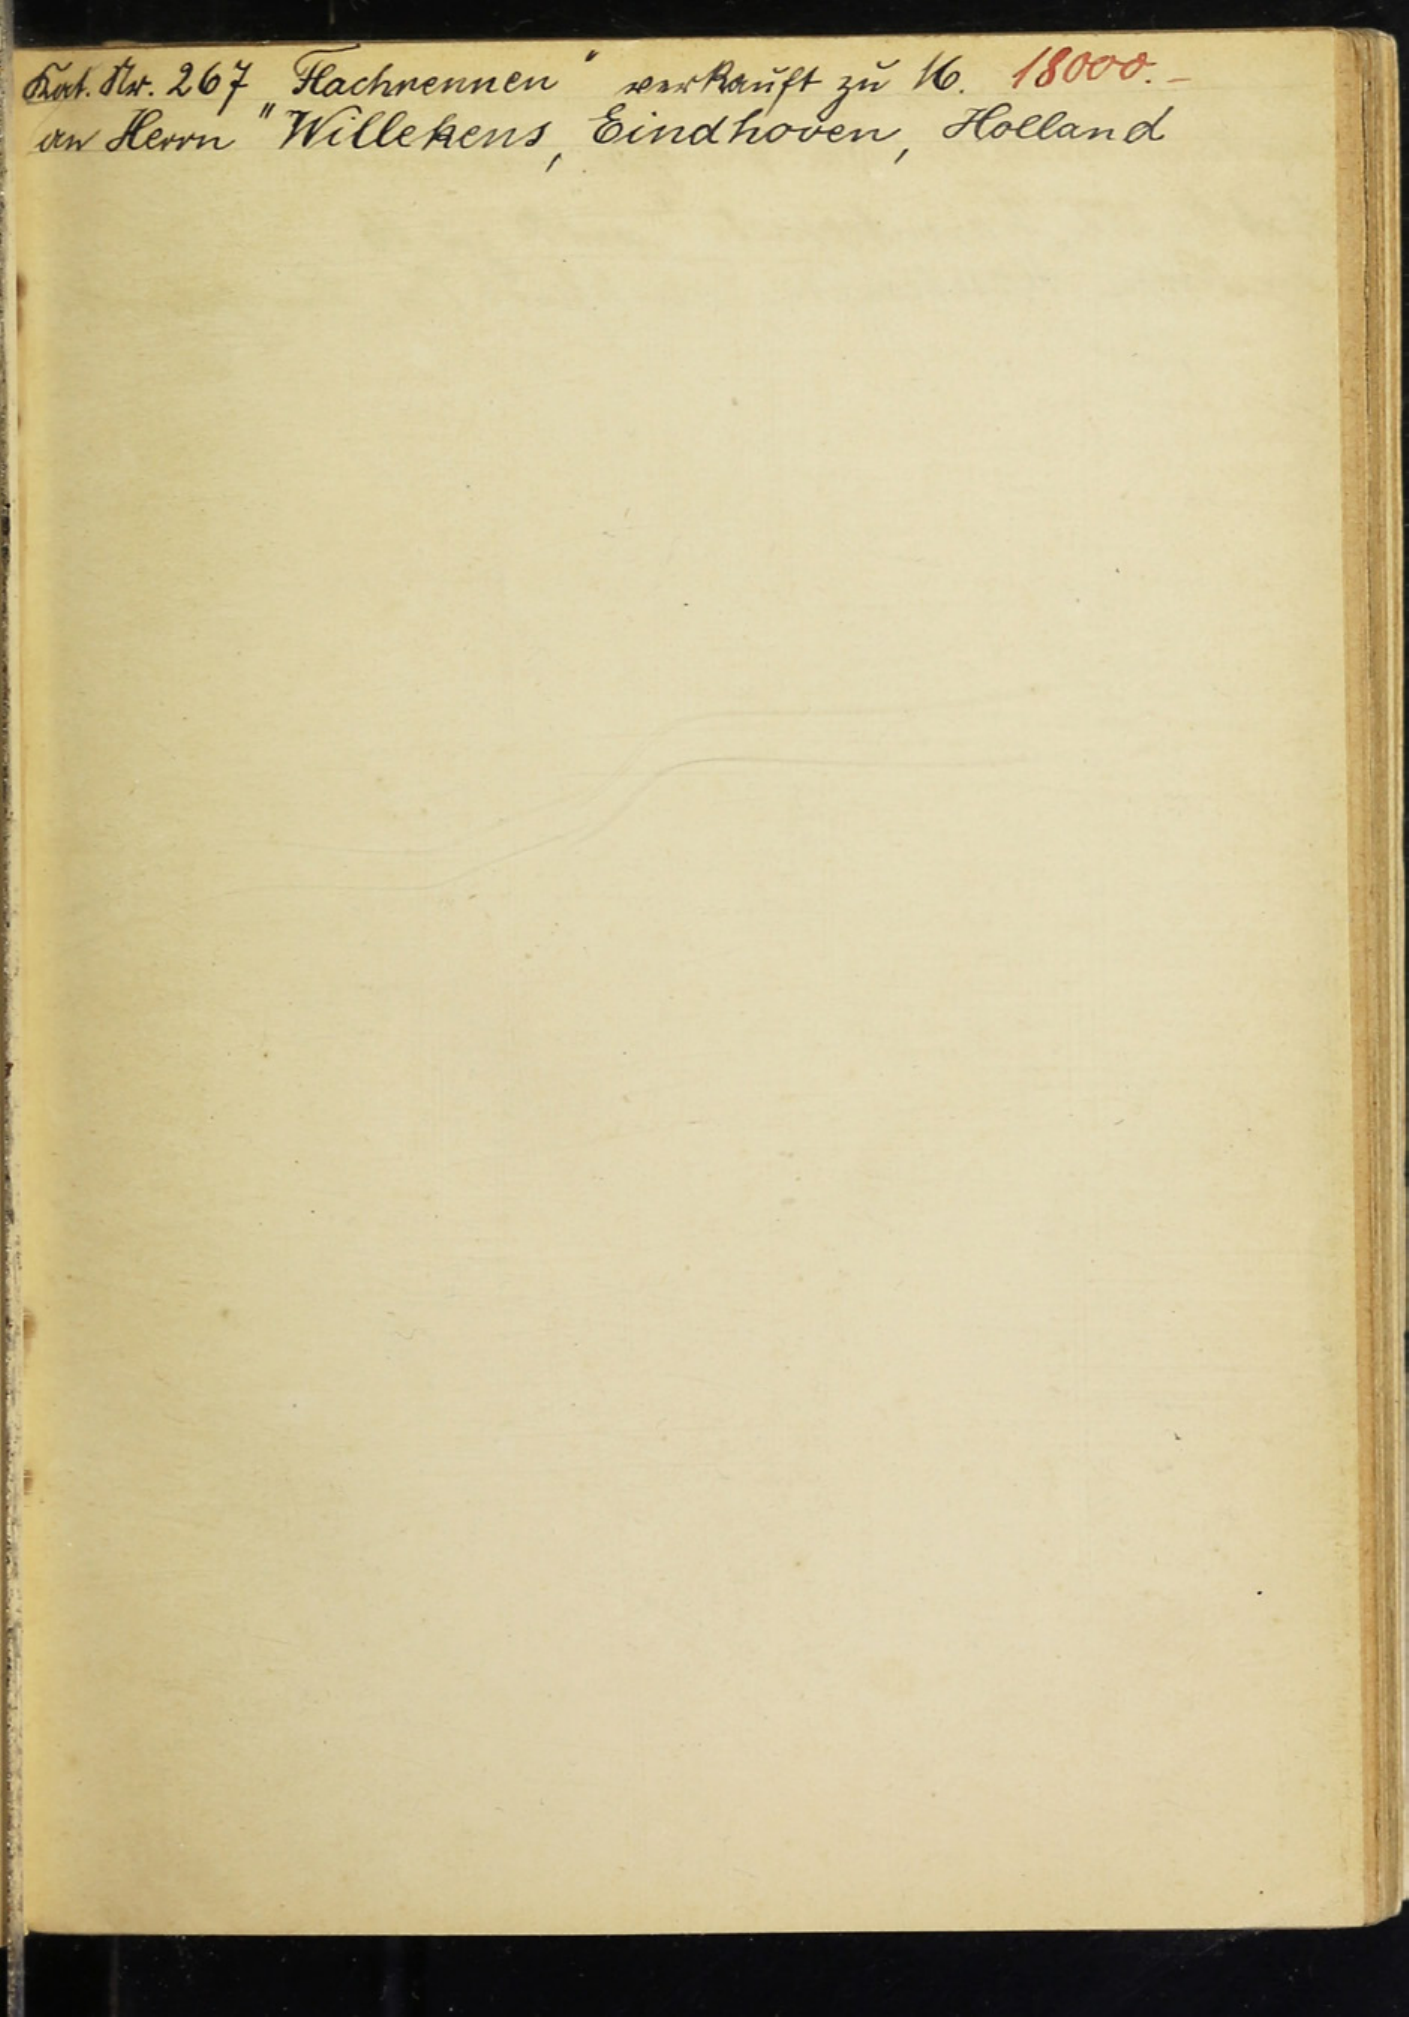 Kat. Nr. 267 „Flachrennen“ verkauft zu M. 18000.–
an Herrn Willekens, Eindhoven, Holland